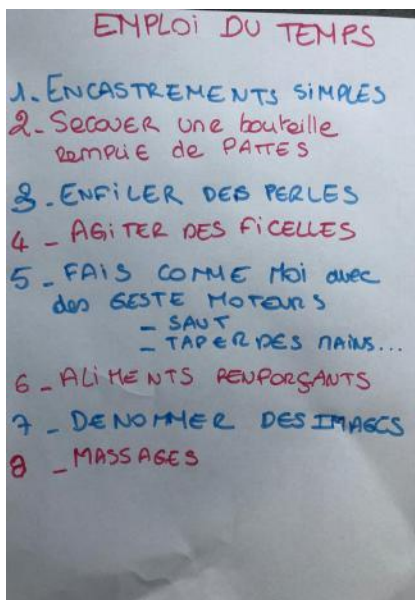 EMPLOI DU TEMPS
1. ENCASTREMENTS SIMPLES
2. SECOUER une bouteille
REMPLIE de PATTES
3. ENFILER DES PERLES
4 _ AGITER DES FICELLES
5 _ FAIS COMME MOI avec
des GESTE MOTEURS
_ SAUT
_ TAPER DES MAINS...
6 _ ALIMENTS RENFORÇANTS
7 _ DENOMMER DES IMAGES
8 _ MASSAGES